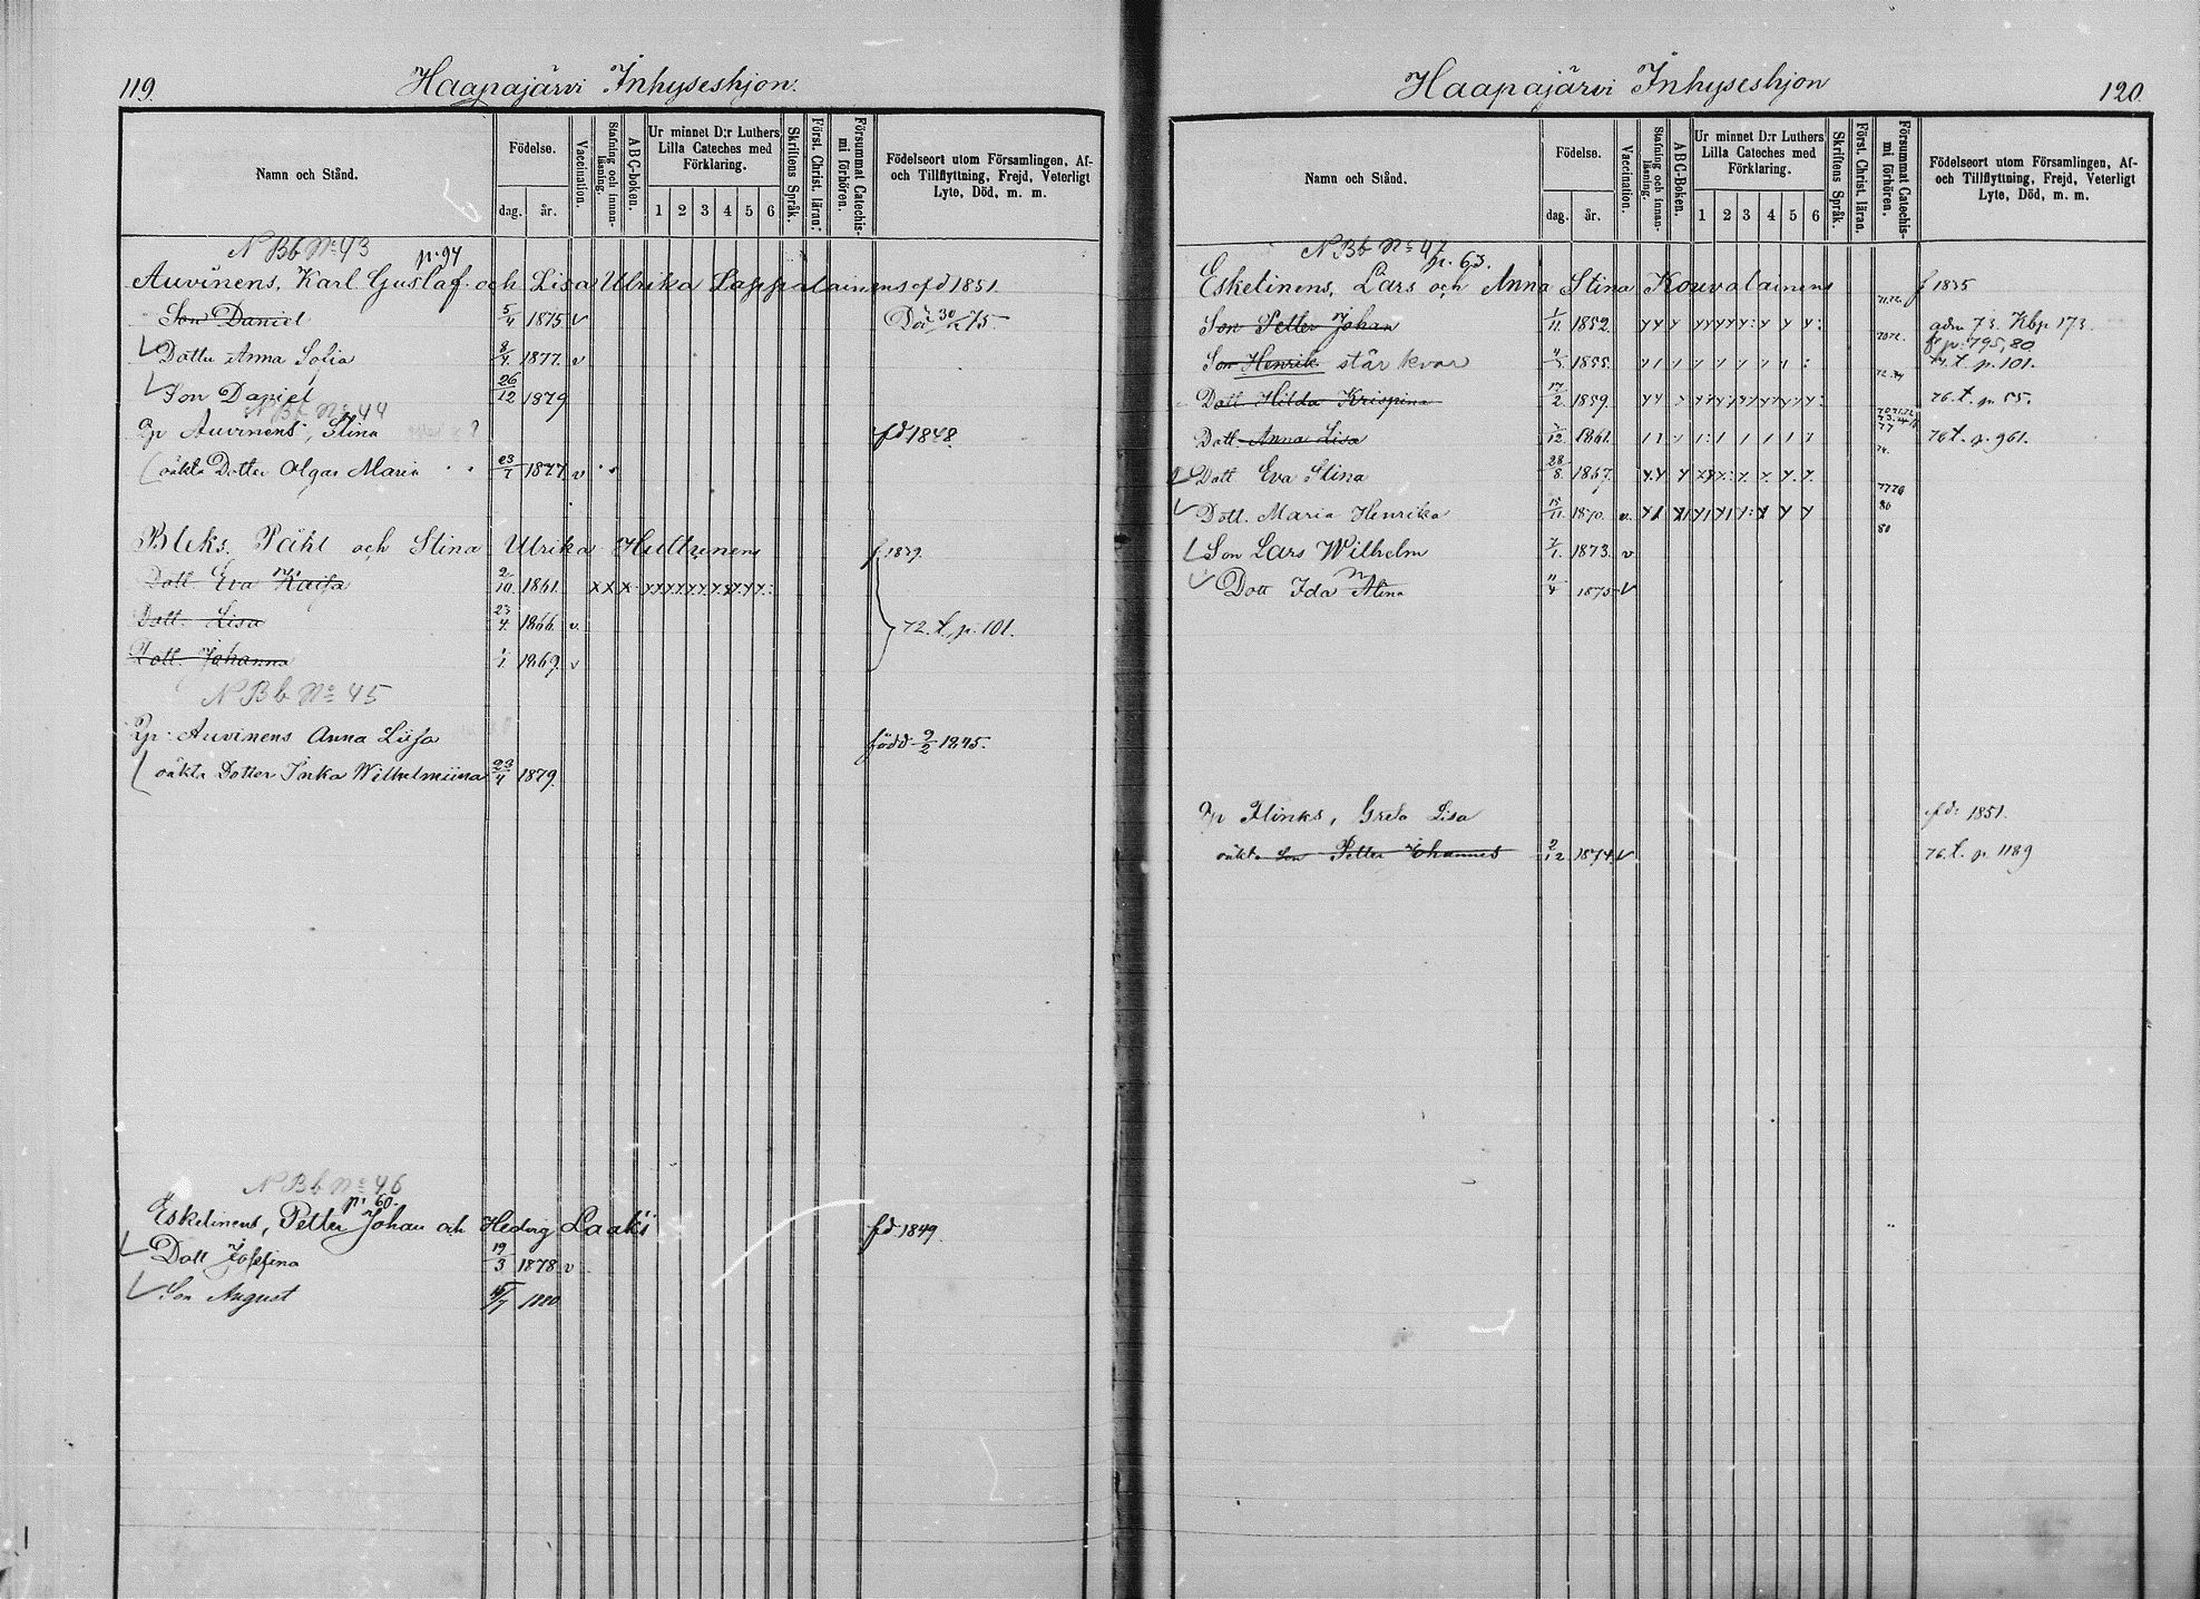 119.
Haapajärvi Inhyseshjon.
Namn och Stånd.
Födelse.
dag.
år.
Vaccination.
Stafning och innan-läsning.
ABC-boken.
Ur minnet D:r Luthers Lilla Cateches med Förklaring.
1 2 3 4 5 6
Skriftens Språk.
Först. Christ. läran.
Försummat Catechis-mi förhören.
Födelseort utom Församlingen, Af- och Tillflyttning, Frejd, Veterligt Lyte, Död, m. m.
N Bb No 43
p. 94
Auvinens, Karl Gustaf och Lisa Ulrika Lappalainens fd 1851.
Son Daniel 5/4 1875 v Död 30/ 75.
Dotter Anna Sofia 8/4 1877. v
Son Daniel 26/12 1879
N Bb No 44
Qp Auvinens, Stina fd 1848.
oäkta Dotter Olga Maria 23/7 1877. v
Bleks, Påhl och Stina Ulrika Hultunens f. 1839.
Dott. Eva Kaisa 2/10 1861. x x x
Dott. Lisa 23/4 1866. v.
72. t. p. 101.
Dott. Johanna 1/1 1869. v
N Bb No 45
Qp. Auvinens Anna Liisa född 9/2 1845.
oäkta Dotter Inka Wilhelmiina 23/4 1879.
N Bb No 46
p. 60.
Eskelinens, Petter Johan och Hedvig Laaksi fd 1849.
Dott Josefina 19/3 1878 v
Son August 15/7 1880
Haapajärvi Inhyseshjon
120.
Namn och Stånd.
Födelse.
dag.
år.
Vaccination.
Stafning och innan-läsning.
ABC-Boken.
Ur minnet D:r Luthers Lilla Cateches med Förklaring.
1 2 3 4 5 6
Skriftens Språk.
Först. Christ. läran.
Försummat Catechis-mi förhören.
Födelseort utom Församlingen, Af- och Tillflyttning, Frejd, Veterligt Lyte, Död, m. m.
N Bb No 47
p. 63.
Eskelinens, Lars och Anna Stina Kouvalainens f 1835
Son Petter Johan 1/11. 1852. adm 73. Kbp 173.
p. 795, 80
Son Henrik står kvar 1855. t. p. 101.
Dott. Hilda Krispina 17/2. 1859. 76. t. p. 55.
Dott. Anna Lisa /12. 1861. 76 t. p. 961.
Dott Eva Stina 28/8. 1867.
Dott. Maria Henrika 15/11. 1870. v.
80
Son Lars Wilhelm 7/1. 1873. v
Dott Ida Alina 11/4 1875 v
Qp Flinks, Greta Lisa fd. 1851.
oäkta Son Petter Johannes 2/12 1874. v 76. t. p. 1189